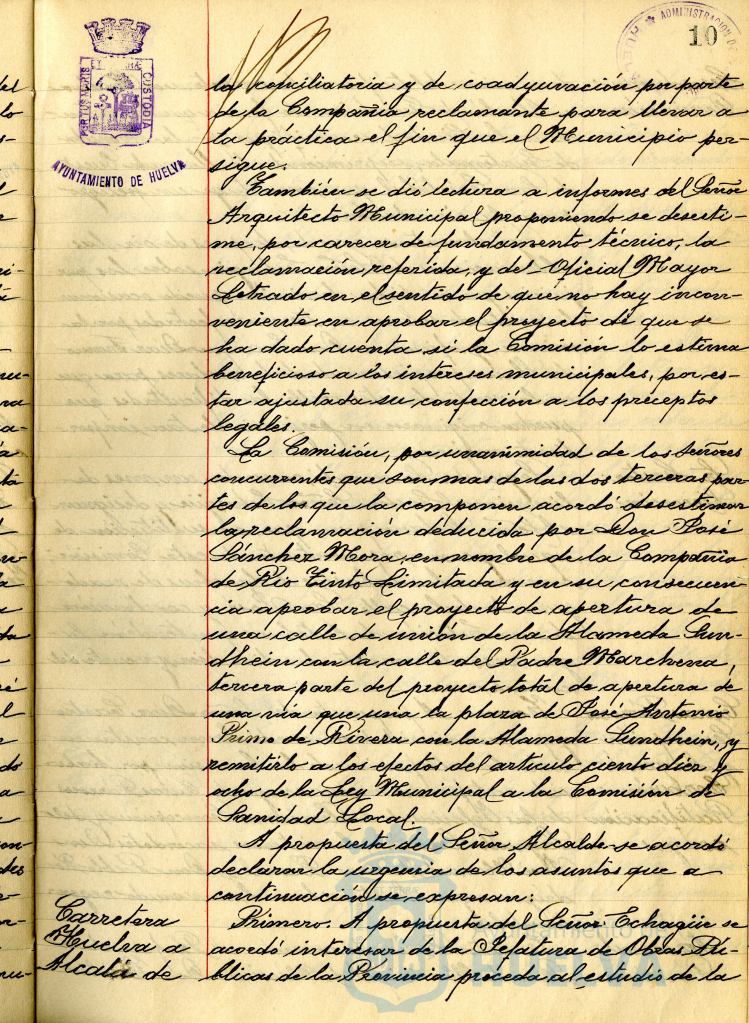 10
ADMINISTRACION DE
PORTUS MARIS
CUSTODIA
AYUNTAMIENTO DE HUELVA
la conciliatoria y de coadyuvación por parte
de la Compañia reclamante para llevar a
la práctica el fin que el Municipio per-
sigue.
También se dió lectura a informes del Señor
Arquitecto Municipal proponiendo se desesti-
me, por carecer de fundamento técnico, la
reclamación referida, y del Oficial Mayor
Letrado en el sentido de que no hay incon-
veniente en aprobar el proyecto de que se
ha dado cuenta si la Comisión lo estima
beneficioso a los intereses municipales, por es-
tar ajustada su confección a los preceptos
legales.
La Comisión, por unanimidad de los Señores
concurrentes que son mas de las dos terceras par-
tes de los que la componen acordó desestimar
la reclamación deducida por Don José
Sánchez Mora en nombre de la Compañia
de Rio Tinto Limitada y en su consecuen-
cia aprobar el proyecto de apertura de
una calle de unión de la Alameda Sun-
dhein con la calle del Padre Marchena,
tercera parte del proyecto total de apertura de
una vía que una la plaza de José Antonio
Primo de Rivera con la Alameda Sundhein, y
remitirlo a los efectos del articulo ciento diez y
ocho de la Ley Municipal a la Comisión de
Sanidad Local.
A propuesta del Señor Alcalde se acordó
declarar la urgencia de los asuntos que a
continuación se expresan:
Carretera
Huelva a
Alcalá de
Primero. A propuesta del Señor Echagüe se
acordó interesar de la Jefatura de Obras Pú-
blicas de la Provincia proceda al estudio de la